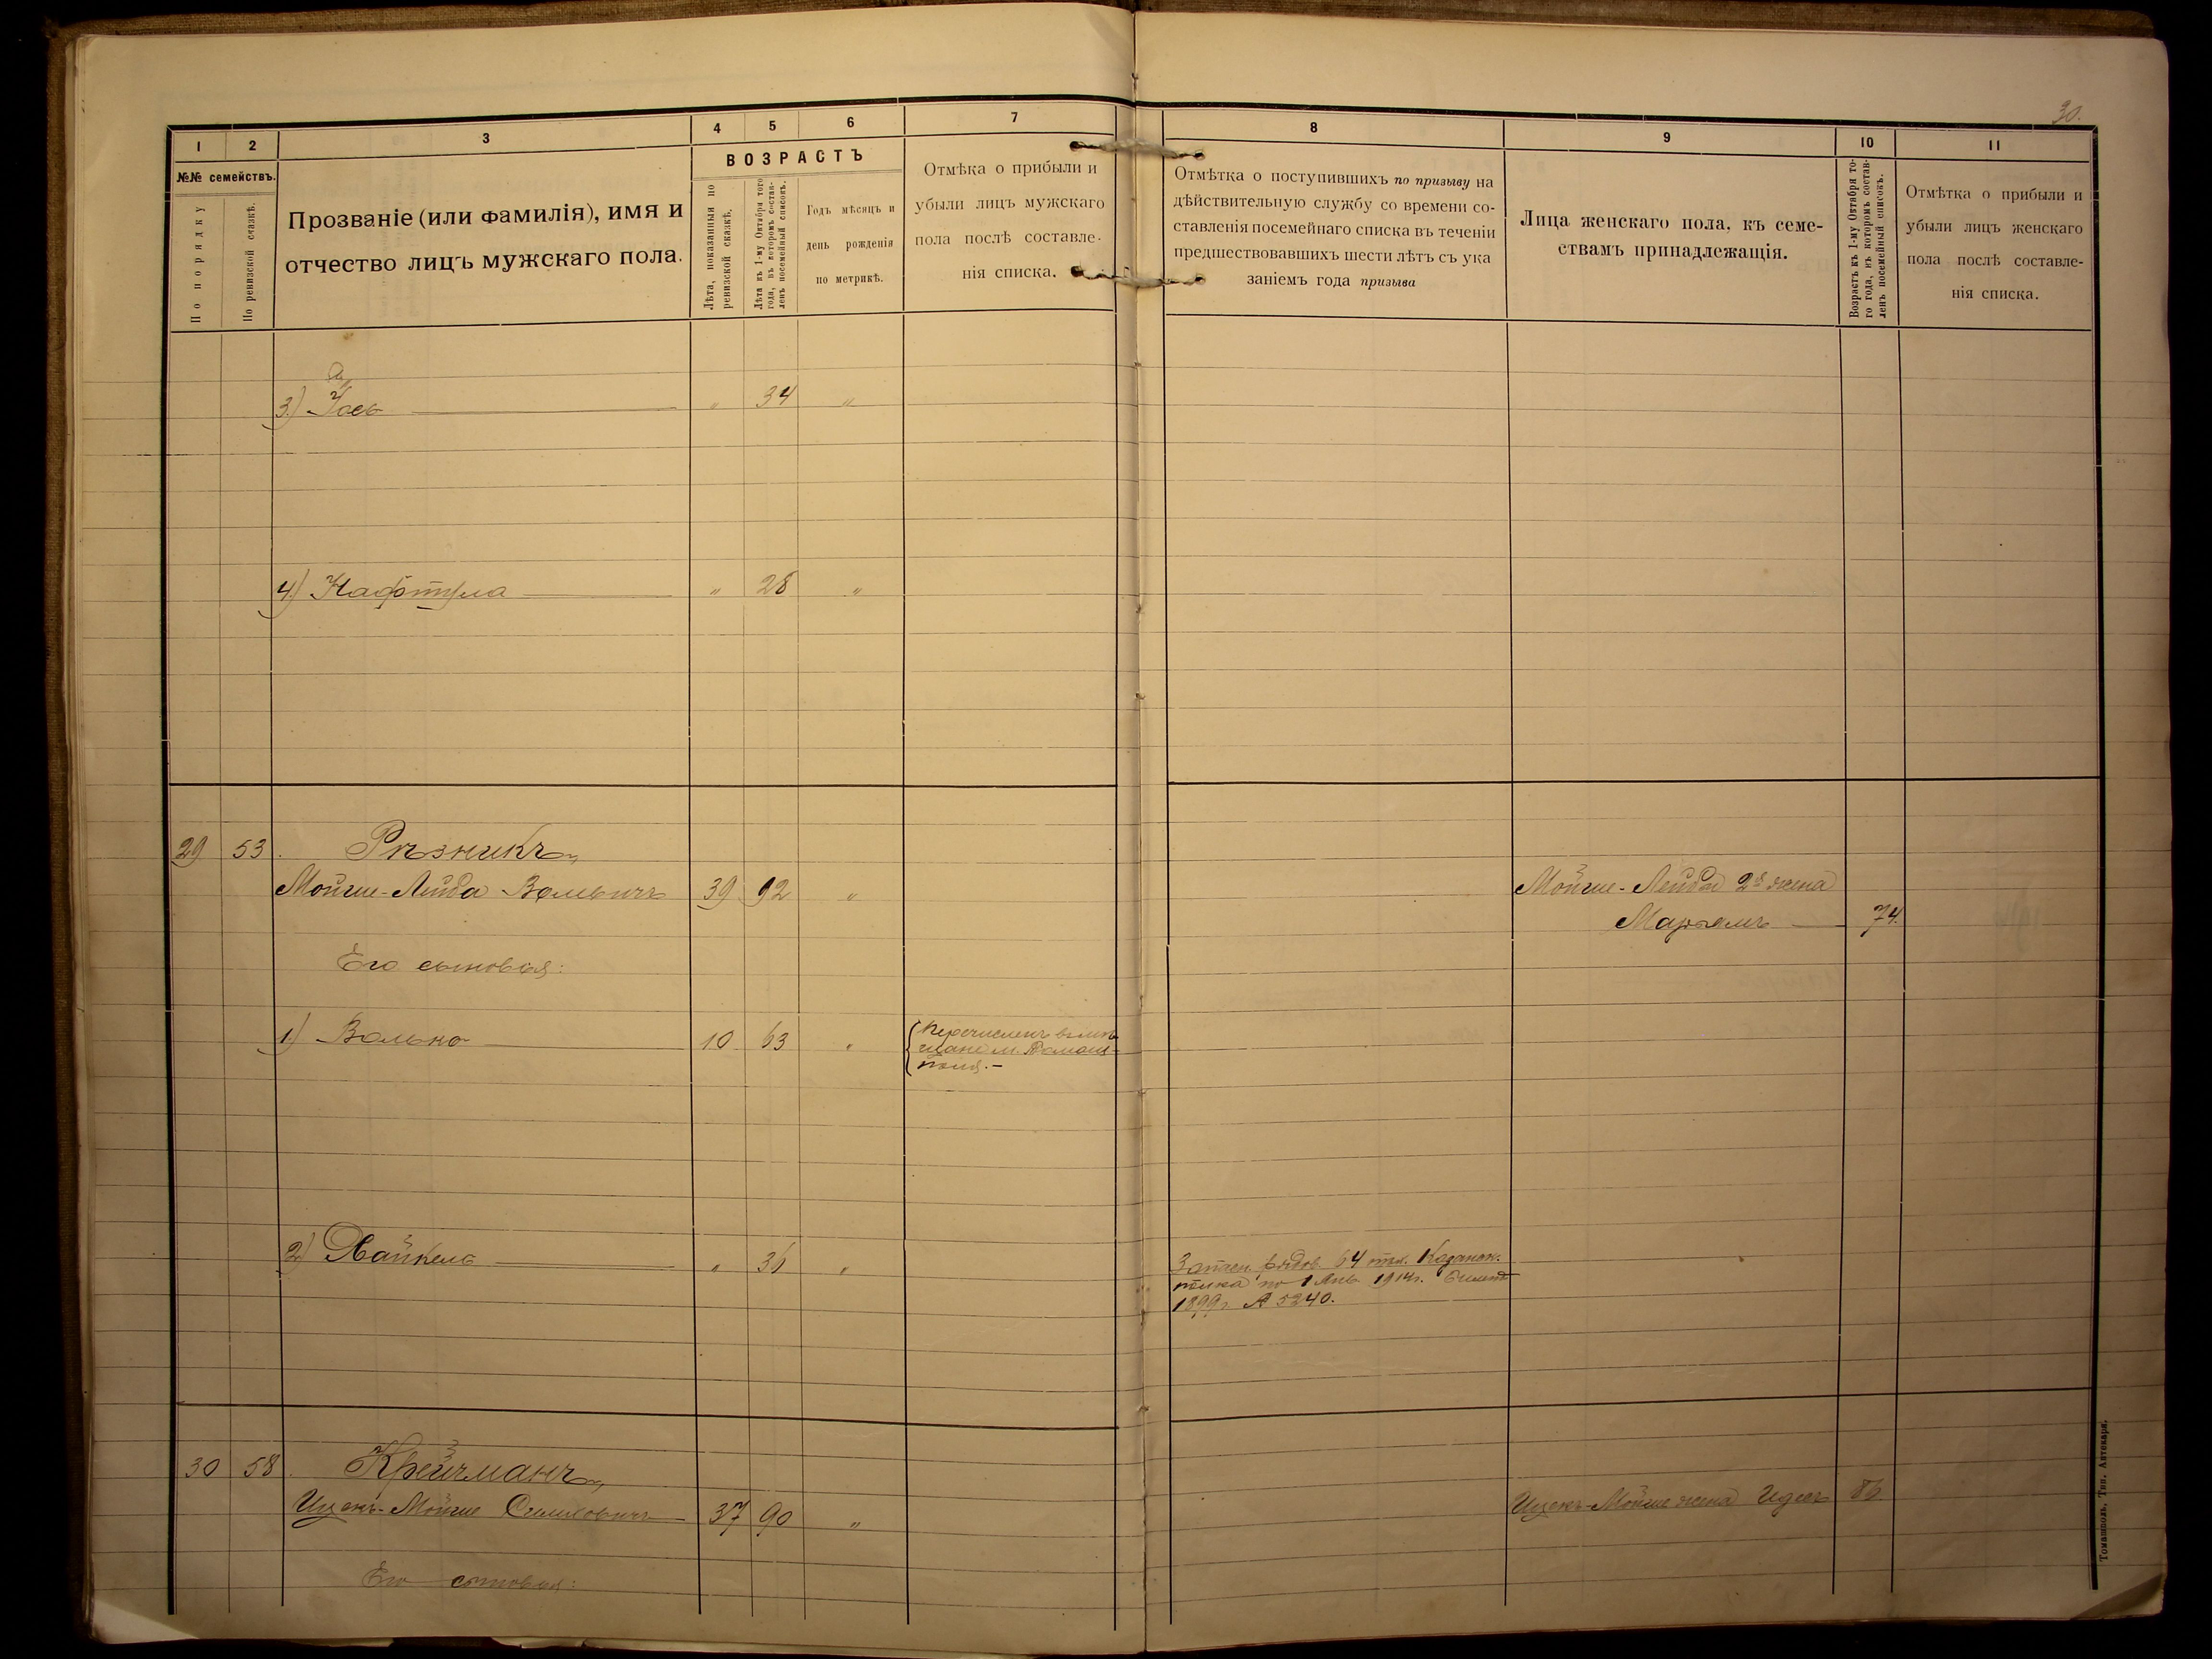 30.
1 2 3 4 5 6 7
№№ семействъ.
По порядку
По ревизской сказкѣ.
Прозваніе (или фамилія), имя и
отчество лицъ мужскаго пола.
ВОЗРАСТЪ
Лѣта, показанныя по
ревизской сказкѣ.
Лѣта къ 1-му Октября того
года, въ которомъ состав-
ленъ посемейный списокъ.
Годъ мѣсяцъ и
день рожденія
по метрикѣ.
Отмѣка о прибыли и
убыли лицъ мужскаго
пола послѣ составле-
нія списка.
8 9 10 11
Отмѣтка о поступившихъ по призыву на
дѣйствительную службу со времени со-
ставленія посемейнаго списка въ теченіи
предшествовавшихъ шести лѣтъ съ ука
заніемъ года призыва
Лица женскаго пола, къ семе-
ствамъ принадлежащія.
Возрастъ къ 1-му Октября то-
го года, въ которомъ состав-
ленъ посемейный списокъ.
Отмѣтка о прибыли и
убыли лицъ женскаго
пола послѣ составле-
нія списка.
3.) " 34 "
4.) Нафтула " 28 "
29 53. Рѣзникъ,
Мойше-Лейба Вольвичъ 39 92 "
Мойше-Лейба 2я жена
Марьямъ 74.
Его сыновья:
1.) Волько 10 63 "
Перечисленъ въ мѣ-
щане м. Томаш-
поля.-
2.) Хайкель " 36 "
Запасн. рядов. 64 пѣх. Казанск.
полка по 1 Янв 1914г. билетъ
1899г. № 5240.
30 58. Крейчманъ,
Ицекъ-Мойше 37 90 "
Ицекъ-Мойше жена Идесъ 86
Его сыновья:
Томашполь, Тип. Аптекаря.